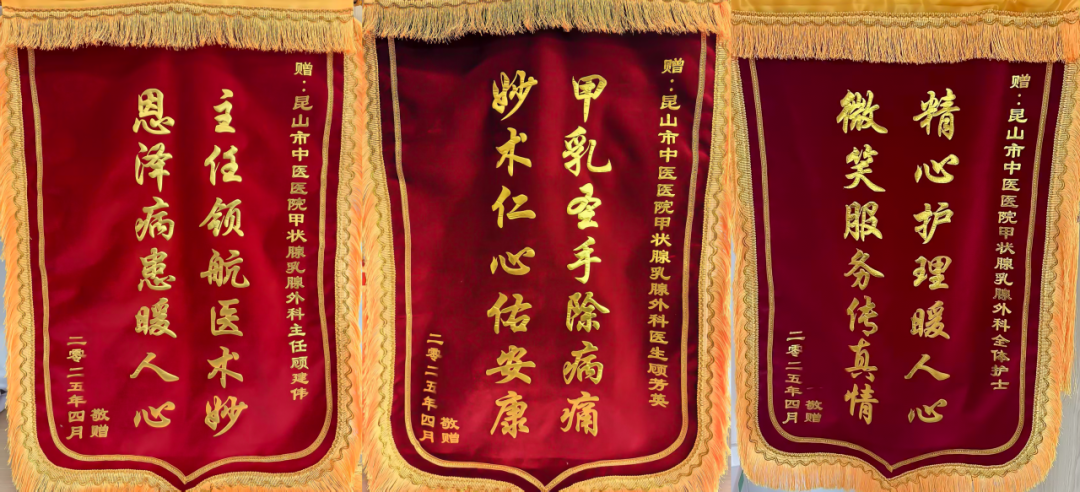 赠：昆山市中医医院甲状腺乳腺外科主任顾建伟
主任领航医术妙
恩泽病患暖人心
敬赠
二零二五年四月
赠：昆山市中医医院甲状腺乳腺外科医生顾芳英
甲乳圣手除病痛
妙术仁心佑安康
敬赠
二零二五年四月
赠：昆山市中医医院甲状腺乳腺外科全体护士
精心护理暖人心
微笑服务传真情
敬赠
二零二五年四月